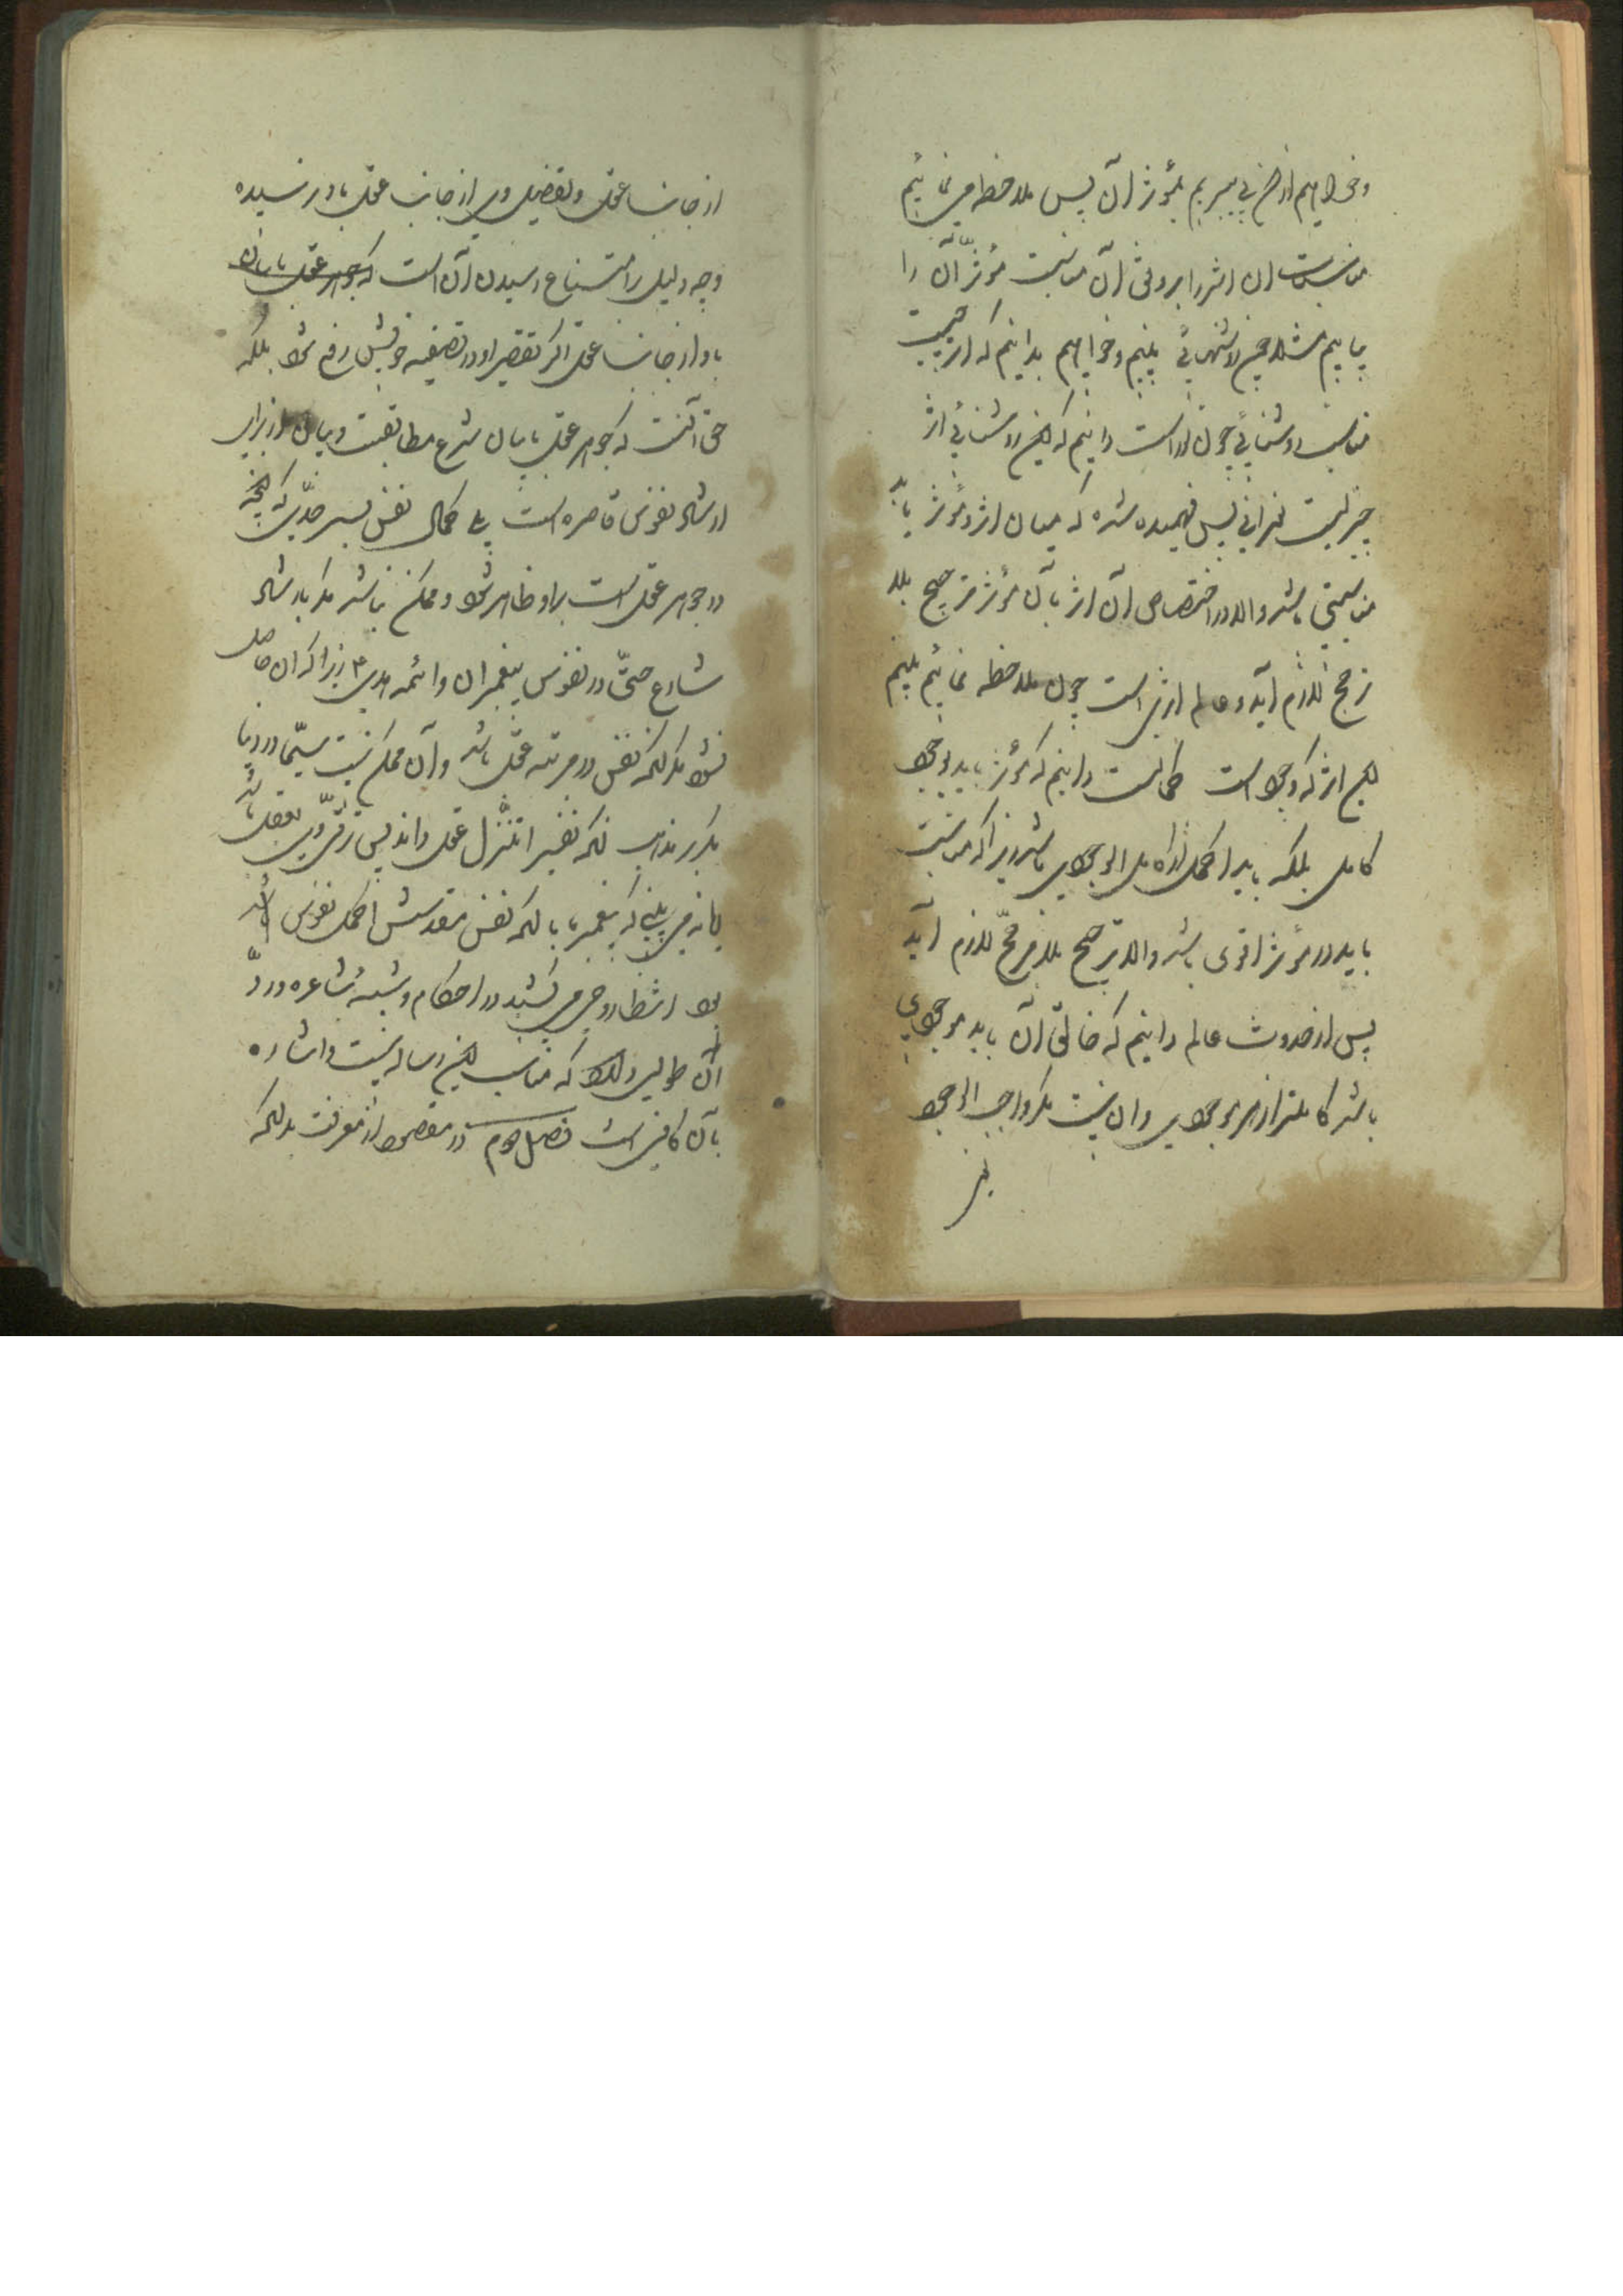 وخواهیم از اثر پی ببریم بمؤثر آن پس ملاحظه می نمائیم
مناسبات آن اثر را بر وفق آن مناسبت مؤثر آن را
بیابیم مثلا چون روشنائی بینیم وخواهیم بدانیم که از چیست
مناسب روشنائی چون نور است دانیم که این روشنائی از
چیزیست نورانی پس فهمیده شده که میان اثر ومؤثر باید
مناسبتی باشد والا در اختصاص آن اثر بآن مؤثر ترجیح بلا
مرجح لازم آید وعالم اثری است چون ملاحظه نمائیم بینیم
این اثر که وجود است کمالست دانیم که مؤثر باید موجود
کامل بلکه باید اکمل از کامل الوجودی باشد زیرا که مناسبت
باید در مؤثر اقوی باشد والا ترجیح بلا مرجح لازم آید
پس از حدوث عالم دانیم که خالق آن باید موجودی
باشد کاملتر از هر موجودی وآن نیست مگر واجب الوجود
از جانب عقل وتفصیل وی از جانب عقل باو رسیده
وجه دلیل امتناع رسیدن آن است که جوهر عقل با بیان
باو از جانب عقل اگر تقصیر او در تصفیه خویش رفع شود بلکه
حق آنست که جوهر عقل با بیان شرع مطابقست وبیان از برای
ارشاد نفوس قاصره است پی کمال نفس بسر حدی که آنچه
در جوهر عقل است بر او ظاهر شود وممکن نباشد مگر بارشاد
شارع حتی در نفوس پیغمبران وائمه هدی ع زیرا که آن حاصل
نشود مگر آنکه نفس در مرتبه عقل باشد وآن ممکن نیست سیما در دنیا
مگر بر مذهب آنکه نفس را تنزل عقل داند پس ترقی وی بعقل باشد
یا نه می بینی که پیغمبر با آنکه نفس مقدسش اکمل نفوس
بود انتظار وحی می کشید در احکام وشبه اشاعره ورد
آن طولی دارد که مناسب این رساله نیست واشاره
بآن کافی است فصل دوم در مقصود از معرفت بدانکه